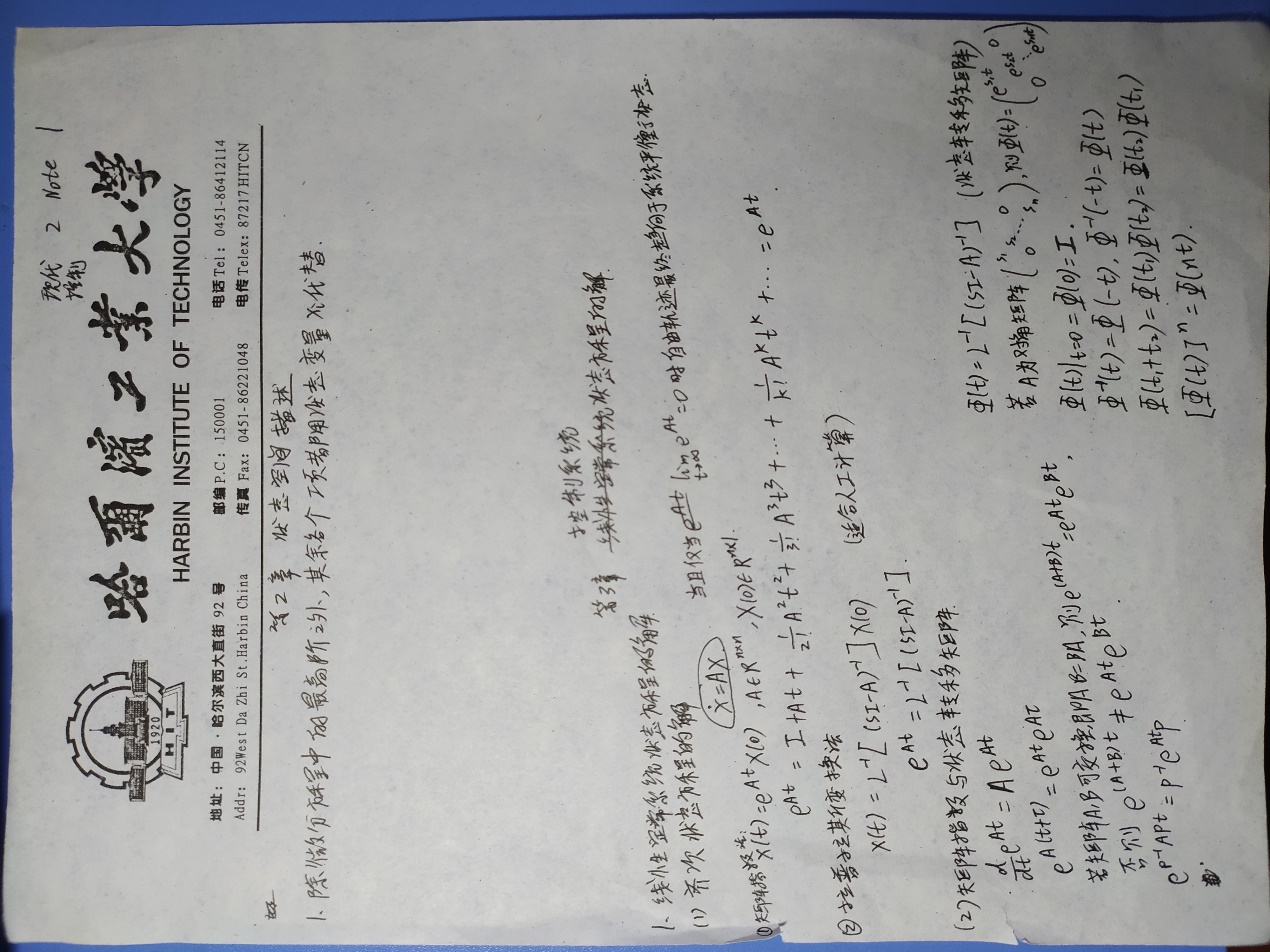 现代 2 Note 1
控制
1920
HIT
哈爾濱工業大學
HARBIN INSTITUTE OF TECHNOLOGY
地址：中国·哈尔滨西大直街 92 号 邮编 P.C： 150001 电话 Tel： 0451-86412114
Addr: 92West Da Zhi St.Harbin China 传真 Fax: 0451-86221048 电传 Telex: 87217HITCN
第2章 状态空间描述
1、除微分方程中的最高阶之外,其余各个项都用状态变量 xi代替.
控制系统
第3章 线性定常系统状态方程的解
1、线性定常系统状态方程的解
(1) 齐次状态方程的解 当且仅当 e^{At} lim_{t→∞} e^{At}=0 时自由轨迹最终趋向于系统平衡状态.
ẋ=AX
①矩阵指数法: X(t)=e^{At}X(0) ,A∈R^{n×n} ,X(0)∈R^{n×1}.
e^{At} = I+At+ 1/2! A²t²+ 1/3! A³t³ +⋯+ 1/k! A^k t^k +⋯ = e^{At}.
②拉普拉其斯变换法
X(t)=L⁻¹[(SI-A)⁻¹]X(0) (适合人工计算)
e^{At}=L⁻¹[(SI-A)⁻¹].
(2)矩阵指数与状态转移矩阵.
d/dt e^{At} = Ae^{At}
e^{A(t+τ)} = e^{At}e^{Aτ}
若矩阵A,B可交换,即AB=BA,则e^{(A+B)t}=e^{At}e^{Bt},
否则 e^{(A+B)t} ≠ e^{At}e^{Bt}.
e^{P⁻¹APt}=P⁻¹e^{At}P
Φ(t)=L⁻¹[(SI-A)⁻¹] (状态转移矩阵)
若A为对角矩阵 (s₁ s₂ ⋱ sₙ 0 0),则Φ(t)=(e^{s₁t} 0 e^{s₂t} ⋱ 0 e^{sₙt})
Φ(t)|t=0 = Φ(0)=I.
Φ⁻¹(t)=Φ(-t), Φ⁻¹(-t)=Φ(t)
Φ(t₁+t₂)=Φ(t₁)Φ(t₂)=Φ(t₂)Φ(t₁)
[Φ(t)]ⁿ=Φ(nt).